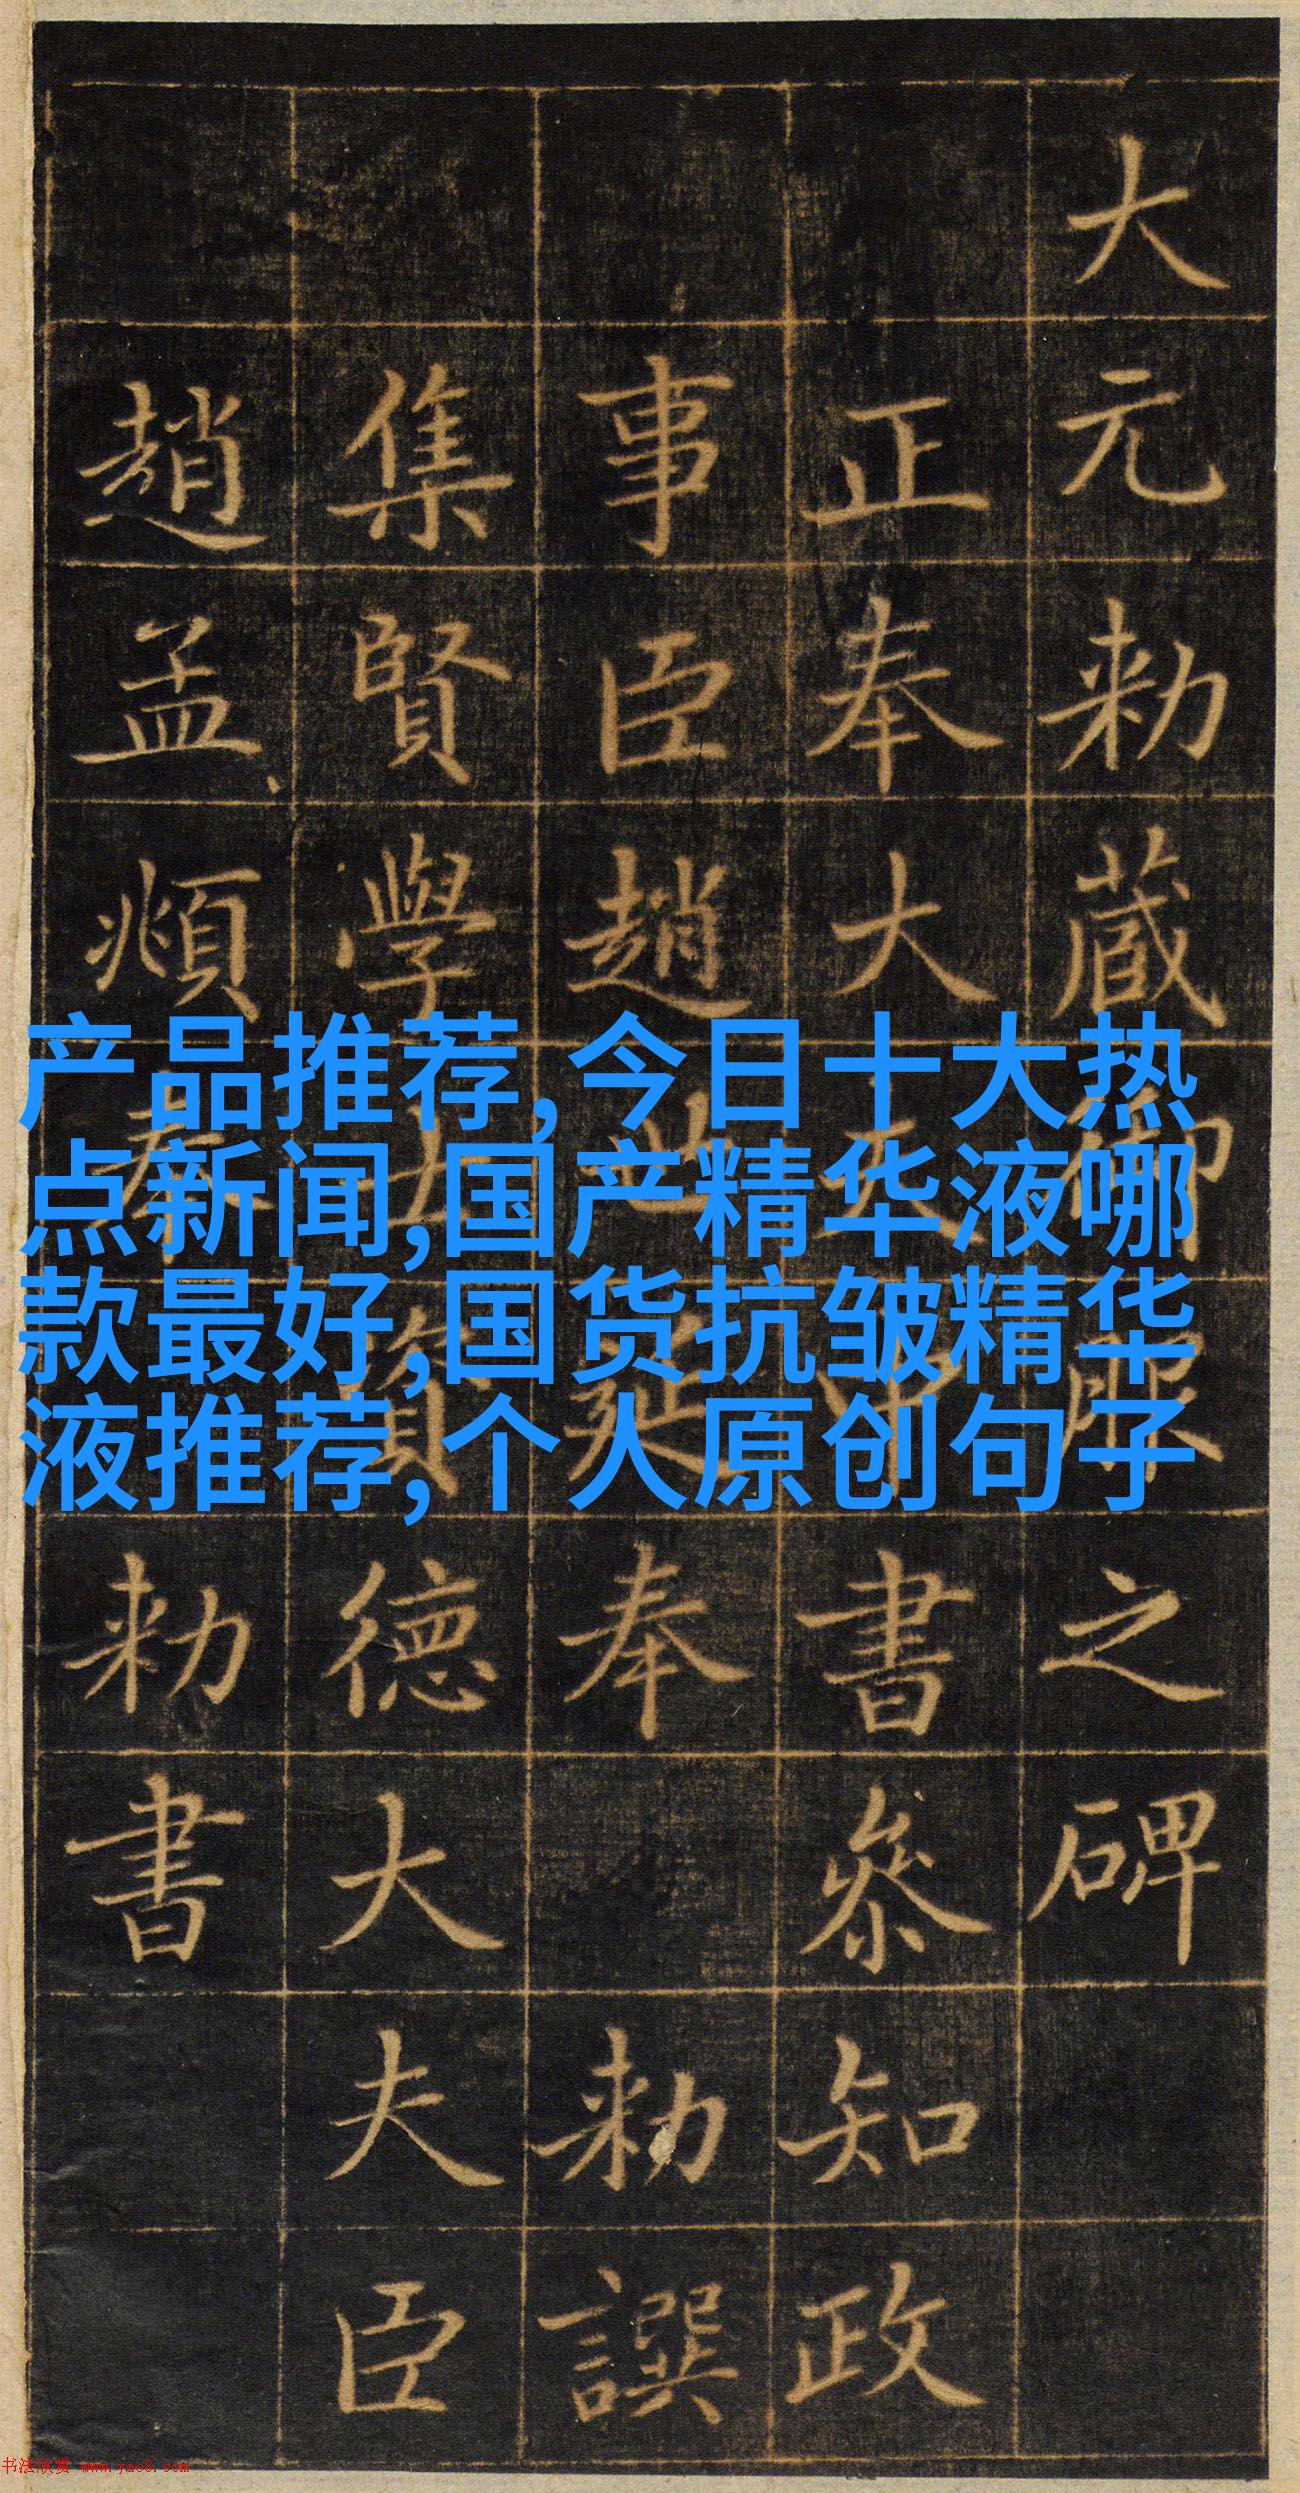 大元勑藏御服之碑
正奉大夫中書參知政
事臣趙世延奉勑譔
集賢學士資德大夫臣
趙孟頫奉勑書
产品推荐,今日十大热
点新闻,国产精华液哪
款最好,国货抗皱精华
液推荐,个人原创句子
书法欣赏 www.yac8.com